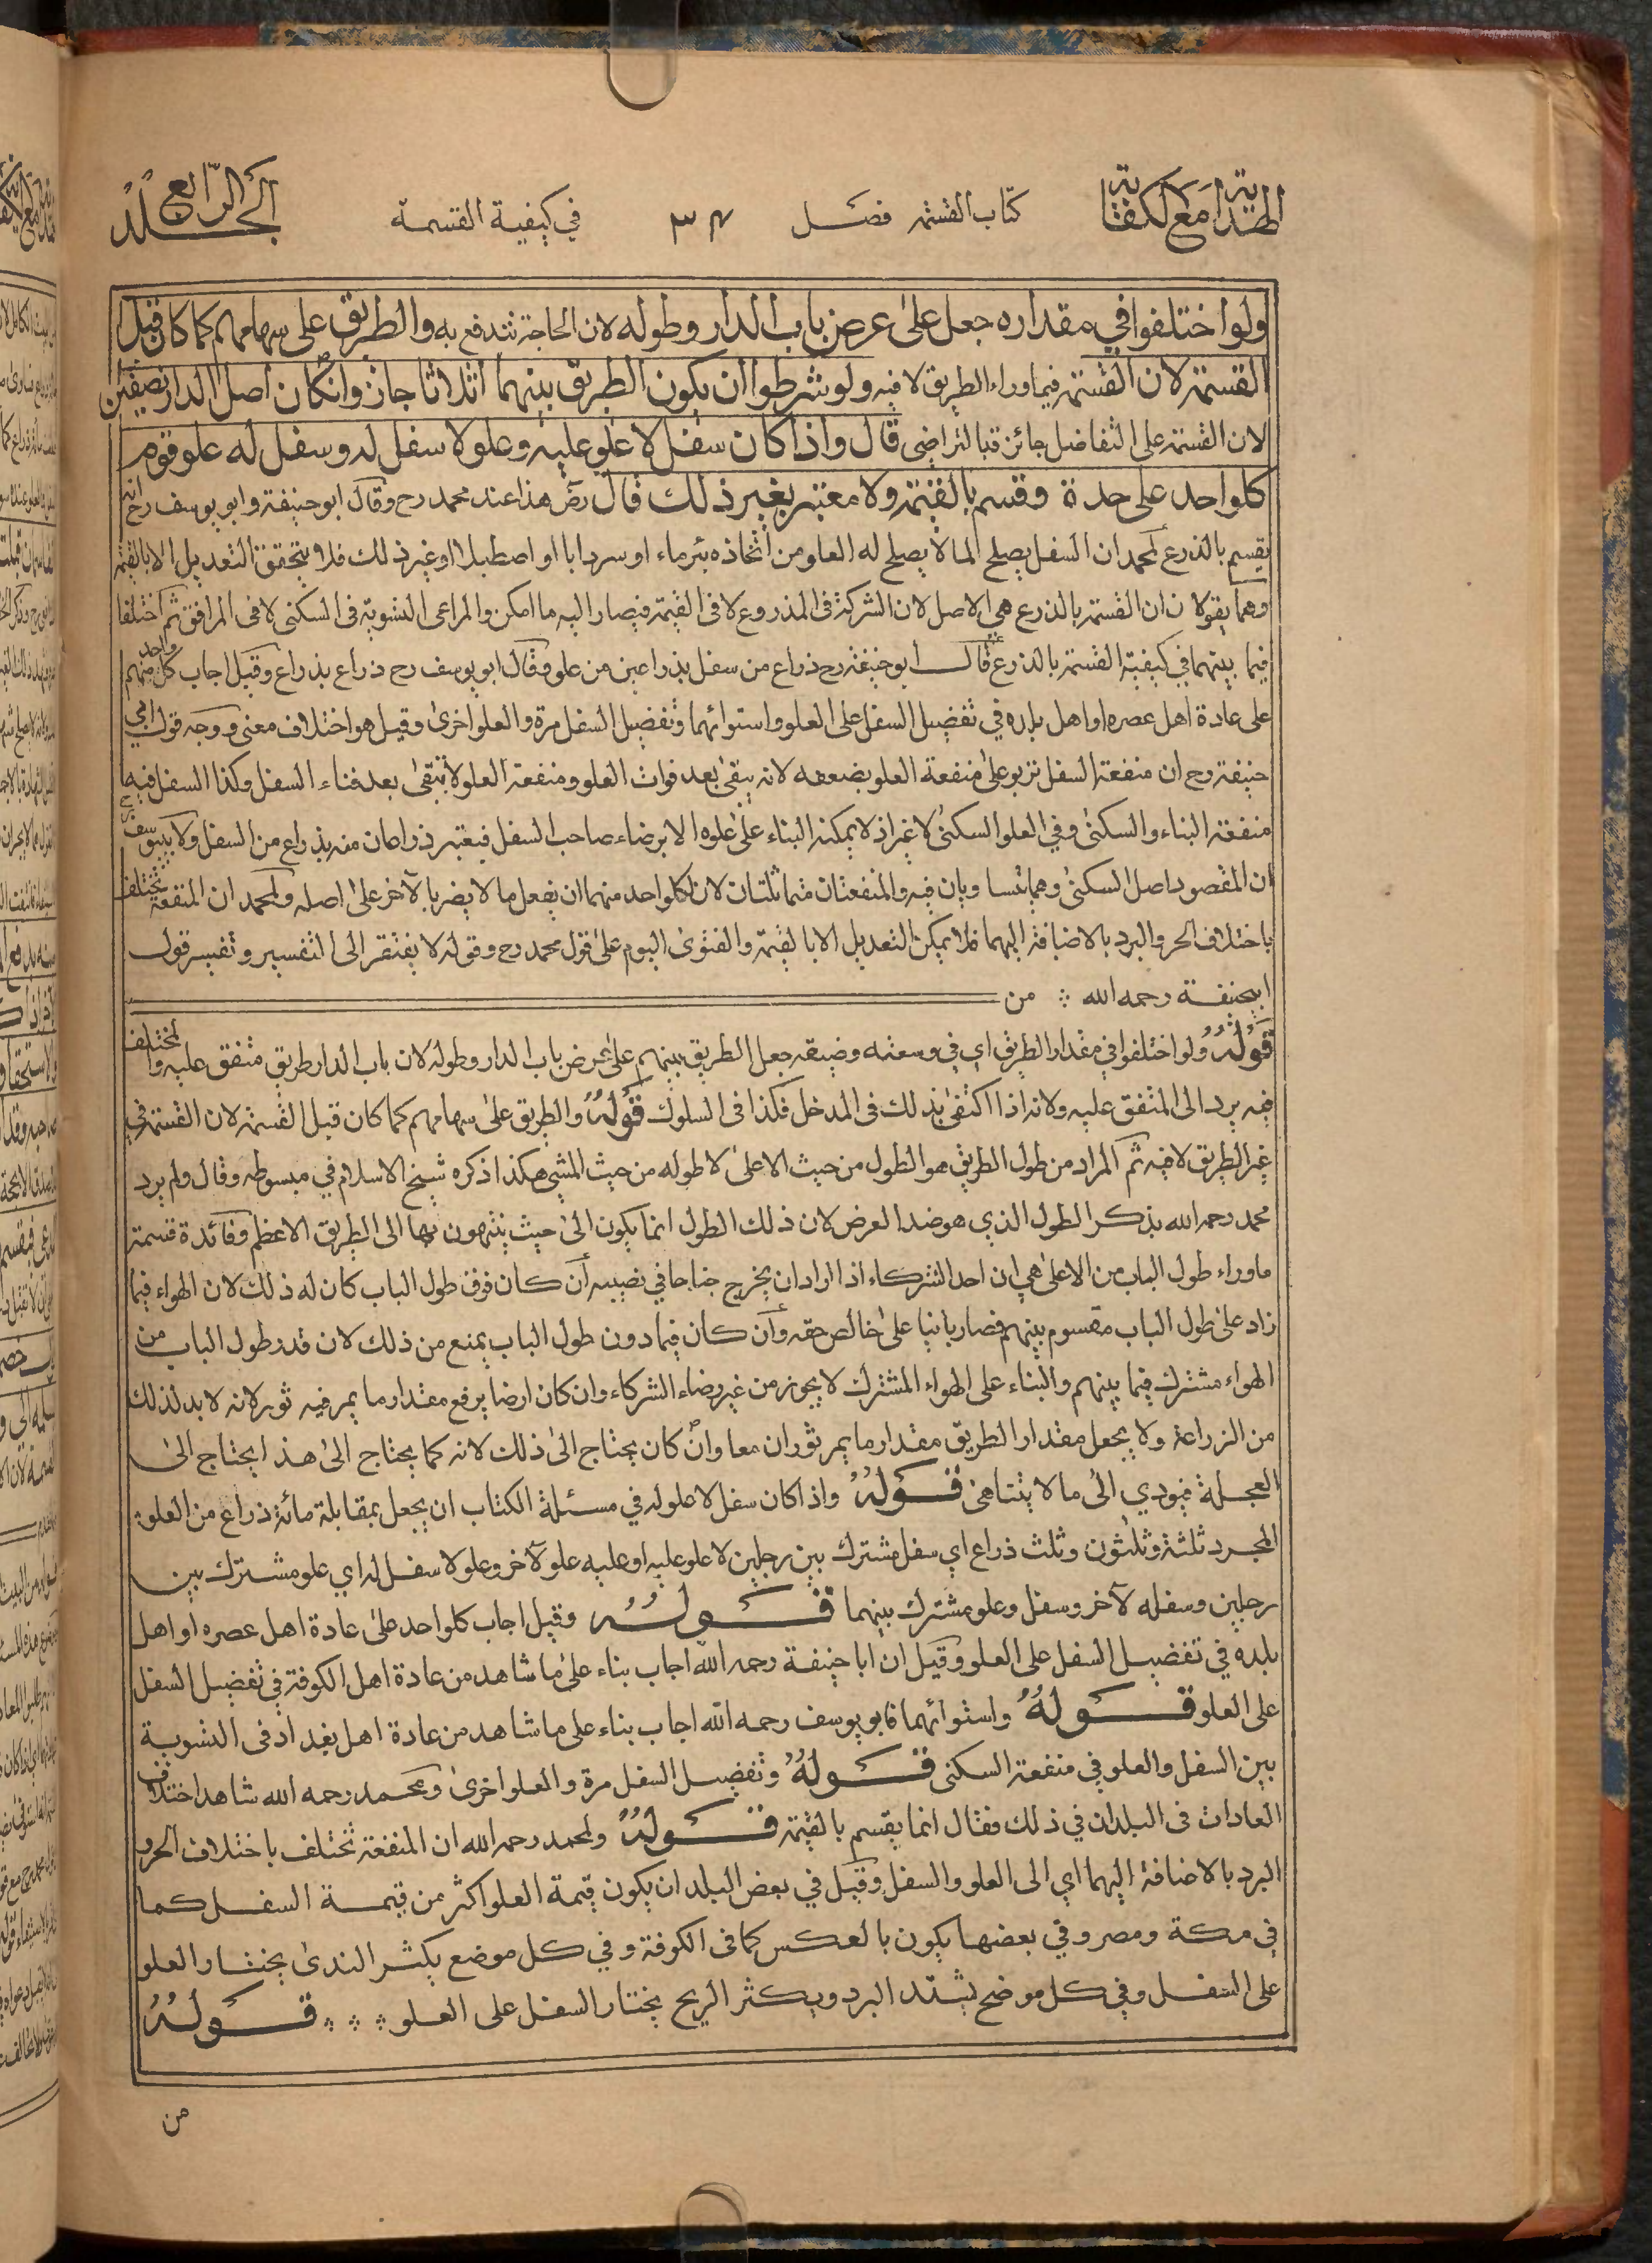 الهداية مع الكفاية
كتاب القسمة فصل
٣٤
في كيفية القسمة
الجلد الرابع
ولو اختلفوا في مقداره جعل على عرض باب الدار وطوله لان الحاجة تندفع به والطريق على سهامهم كما كان قبل
القسمة لان القسمة فيما وراء الطريق لا فيه ولو شرطوا ان يكون الطريق بينهما اثلاثا جاز وان كان اصل الدار نصفين
لان القسمة على التفاضل جائزة بالتراضي قال واذا كان سفل لا علو عليه وعلو لا سفل له وسفل له علو قوم
كلواحد على حدة وقسم بالقيمة ولا معتبر بغير ذلك قال رض هذا عند محمد رح وقال ابو حنيفة وابو يوسف رح انه
يقسم بالذرع لمحمد ان السفل يصلح لما لا يصلح له العلو من اتخاذه بئر ماء او سردابا او اصطبلا او غير ذلك فلا يتحقق التعديل الا بالقيمة
وهما يقولان ان القسمة بالذرع هي الاصل لان الشركة في المذروع لا في القيمة فيصار اليه ما امكن والمراعى التسوية في السكنى لا في المرافق ثم اختلفا
فيما بينهما في كيفية القسمة بالذرع فقال ابو حنيفة رح ذراع من سفل بذراعين من علو وقال ابو يوسف رح ذراع بذراع وقيل اجاب كل واحد منهم
على عادة اهل عصره او اهل بلده في تفضيل السفل على العلو واستوائهما وتفضيل السفل مرة والعلو اخرى وقيل هو اختلاف معنى ووجه قول ابي
حنيفة رح ان منفعة السفل تربو على منفعة العلو بضعفه لانه يبقى بعد فوات العلو ومنفعة العلو لا تبقى بعد فناء السفل وكذا السفل فيه
منفعة البناء والسكنى وفي العلو السكنى لا غير اذ لا يمكنه البناء على علوه الا برضاء صاحب السفل فيعتبر ذراعان منه بذراع من السفل ولابي يوسف رح
ان المقصود اصل السكنى وهما يتساويان فيه والمنفعتان متماثلتان لان لكلواحد منهما ان يفعل ما لا يضر بالآخر على اصله ولمحمد ان المنفعة تختلف
باختلاف الحر والبرد بالاضافة اليهما فلا يمكن التعديل الا بالقيمة والفتوى اليوم على قول محمد رح وقوله لا يفتقر الى التفسير وتفسير قول
ابيحنيفة رحمه الله من
قوله ولو اختلفوا في مقدار الطريق اي في وسعته وضيقه جعل الطريق بينهم على عرض باب الدار وطوله لان باب الدار طريق متفق عليه والمختلف
فيه يرد الى المتفق عليه ولانه اذا اكتفى بذلك في المدخل فكذا في السلوك قوله والطريق على سهامهم كما كان قبل القسمة لان القسمة في
غير الطريق لا فيه ثم المراد من طول الطريق هو الطول من حيث الاعلى لا طوله من حيث المشي هكذا ذكره شيخ الاسلام في مبسوطه وقال ولم يرد
محمد رحمه الله بذكر الطول الذي هو ضد العرض لان ذلك الطول انما يكون الى حيث ينتهون بها الى الطريق الاعظم وفائدة قسمة
ما وراء طول الباب من الاعلى هي ان احد الشركاء اذا اراد ان يخرج جناحا في نصيبه أن كان فوق طول الباب كان له ذلك لان الهواء فيما
زاد على طول الباب مقسوم بينهم فصار بانيا على خالص حقه وأن كان فيما دون طول الباب يمنع من ذلك لان قدر طول الباب من
الهواء مشترك فيما بينهم والبناء على الهواء المشترك لا يجوز من غير رضاء الشركاء وان كان ارضا يرفع مقدار ما يمر فيه ثور لانه لا بد لذلك
من الزراعة ولا يجعل مقدار الطريق مقدار ما يمر ثوران معا وان كان يحتاج الى ذلك لانه كما يحتاج الى هذا يحتاج الى
العجلة فيودي الى ما لا يتناهى قوله واذا كان سفل لا علو له في مسئلة الكتاب ان يجعل بمقابلة مائة ذراع من العلو
المجرد ثلثة وثلثون وثلث ذراع اي سفل مشترك بين رجلين لا علو عليه او عليه علو لآخر وعلو لا سفل له اي علو مشترك بين
رجلين وسفله لآخر وسفل وعلو مشترك بينهما قوله وقيل اجاب كلواحد على عادة اهل عصره او اهل
بلده في تفضيل السفل على العلو وقيل ان ابا حنيفة رحمه الله اجاب بناء على ما شاهد من عادة اهل الكوفة في تفضيل السفل
على العلو قوله واستوائهما فابو يوسف رحمه الله اجاب بناء على ما شاهد من عادة اهل بغداد في التسوية
بين السفل والعلو في منفعة السكنى قوله وتفضيل السفل مرة والعلو اخرى ومحمد رحمه الله شاهد اختلاف
العادات في البلدان في ذلك فقال انما يقسم بالقيمة قوله ولمحمد رحمه الله ان المنفعة تختلف باختلاف الحر و
البرد بالاضافة اليهما اي الى العلو والسفل وقيل في بعض البلدان يكون قيمة العلو اكثر من قيمة السفل كما
في مكة ومصر وفي بعضها يكون بالعكس كما في الكوفة وفي كل موضع يكثر الندى يختار العلو
على السفل وفي كل موضع يشتد البرد ويكثر الريح يختار السفل على العلو قوله
من